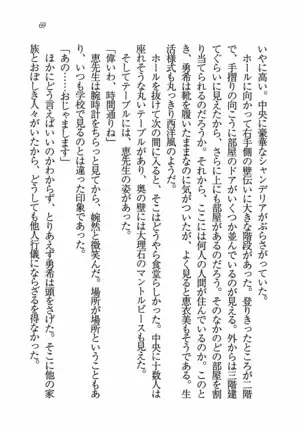 69
いやに高い。中央に豪華なシャンデリアがぶらさがっていた。
ホールに向かって右手側の壁伝いに大きな階段があった。登りきったところが二階
で、手摺りの向こうに部屋のドアがいくつか並んでいるのが見える。外からは三階建
てぐらいに見えたから、さらに上にも部屋があるのだろう。そのなかのどの部屋を割
り当てられるのだろうか。それにしても、ここには何人の人間が住んでいるのか。この
とき、勇希は靴を履いたままなのに気がついたが、よく見ると恵衣美もそうである。生
活様式も丸っきり西洋風のようだ。
ホールを抜けて次の間に入ると、そこはどうやら食堂らしかった。中央に十数人は
座れそうな丸いテーブルがあり、奥の壁には大理石のマントルピースも見えた。
そしてテーブルには、恵先生の姿があった。
「偉いわ、時間通りね」
恵先生は腕時計をちらっと見てから、婉然と微笑んだ。場所が場所ということもあ
り、いつも学校で見るのとは違った印象であった。
「あの……おじゃまします」
ほかにどう言えばいいのかわからず、とりあえず勇希は頭をさげた。そこに他の家
族とおぼしき人々がいたから、どうしても他人行儀にならざるを得なかった。